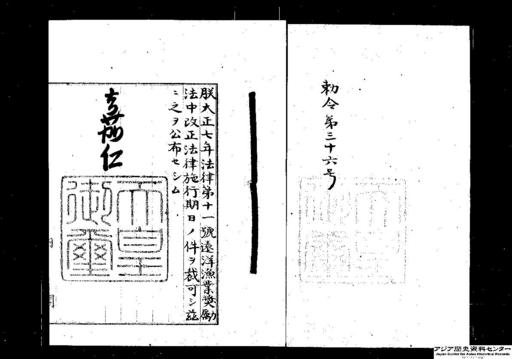 勅令第三十六号
朕大正七年法律第十一號遠洋漁業奬勵
法中改正法律施行期日ノ件ヲ裁可シ茲
ニ之ヲ公布セシム
嘉仁
天皇
御璽
アジア歴史資料センター
Japan Center for Asian Historical Records